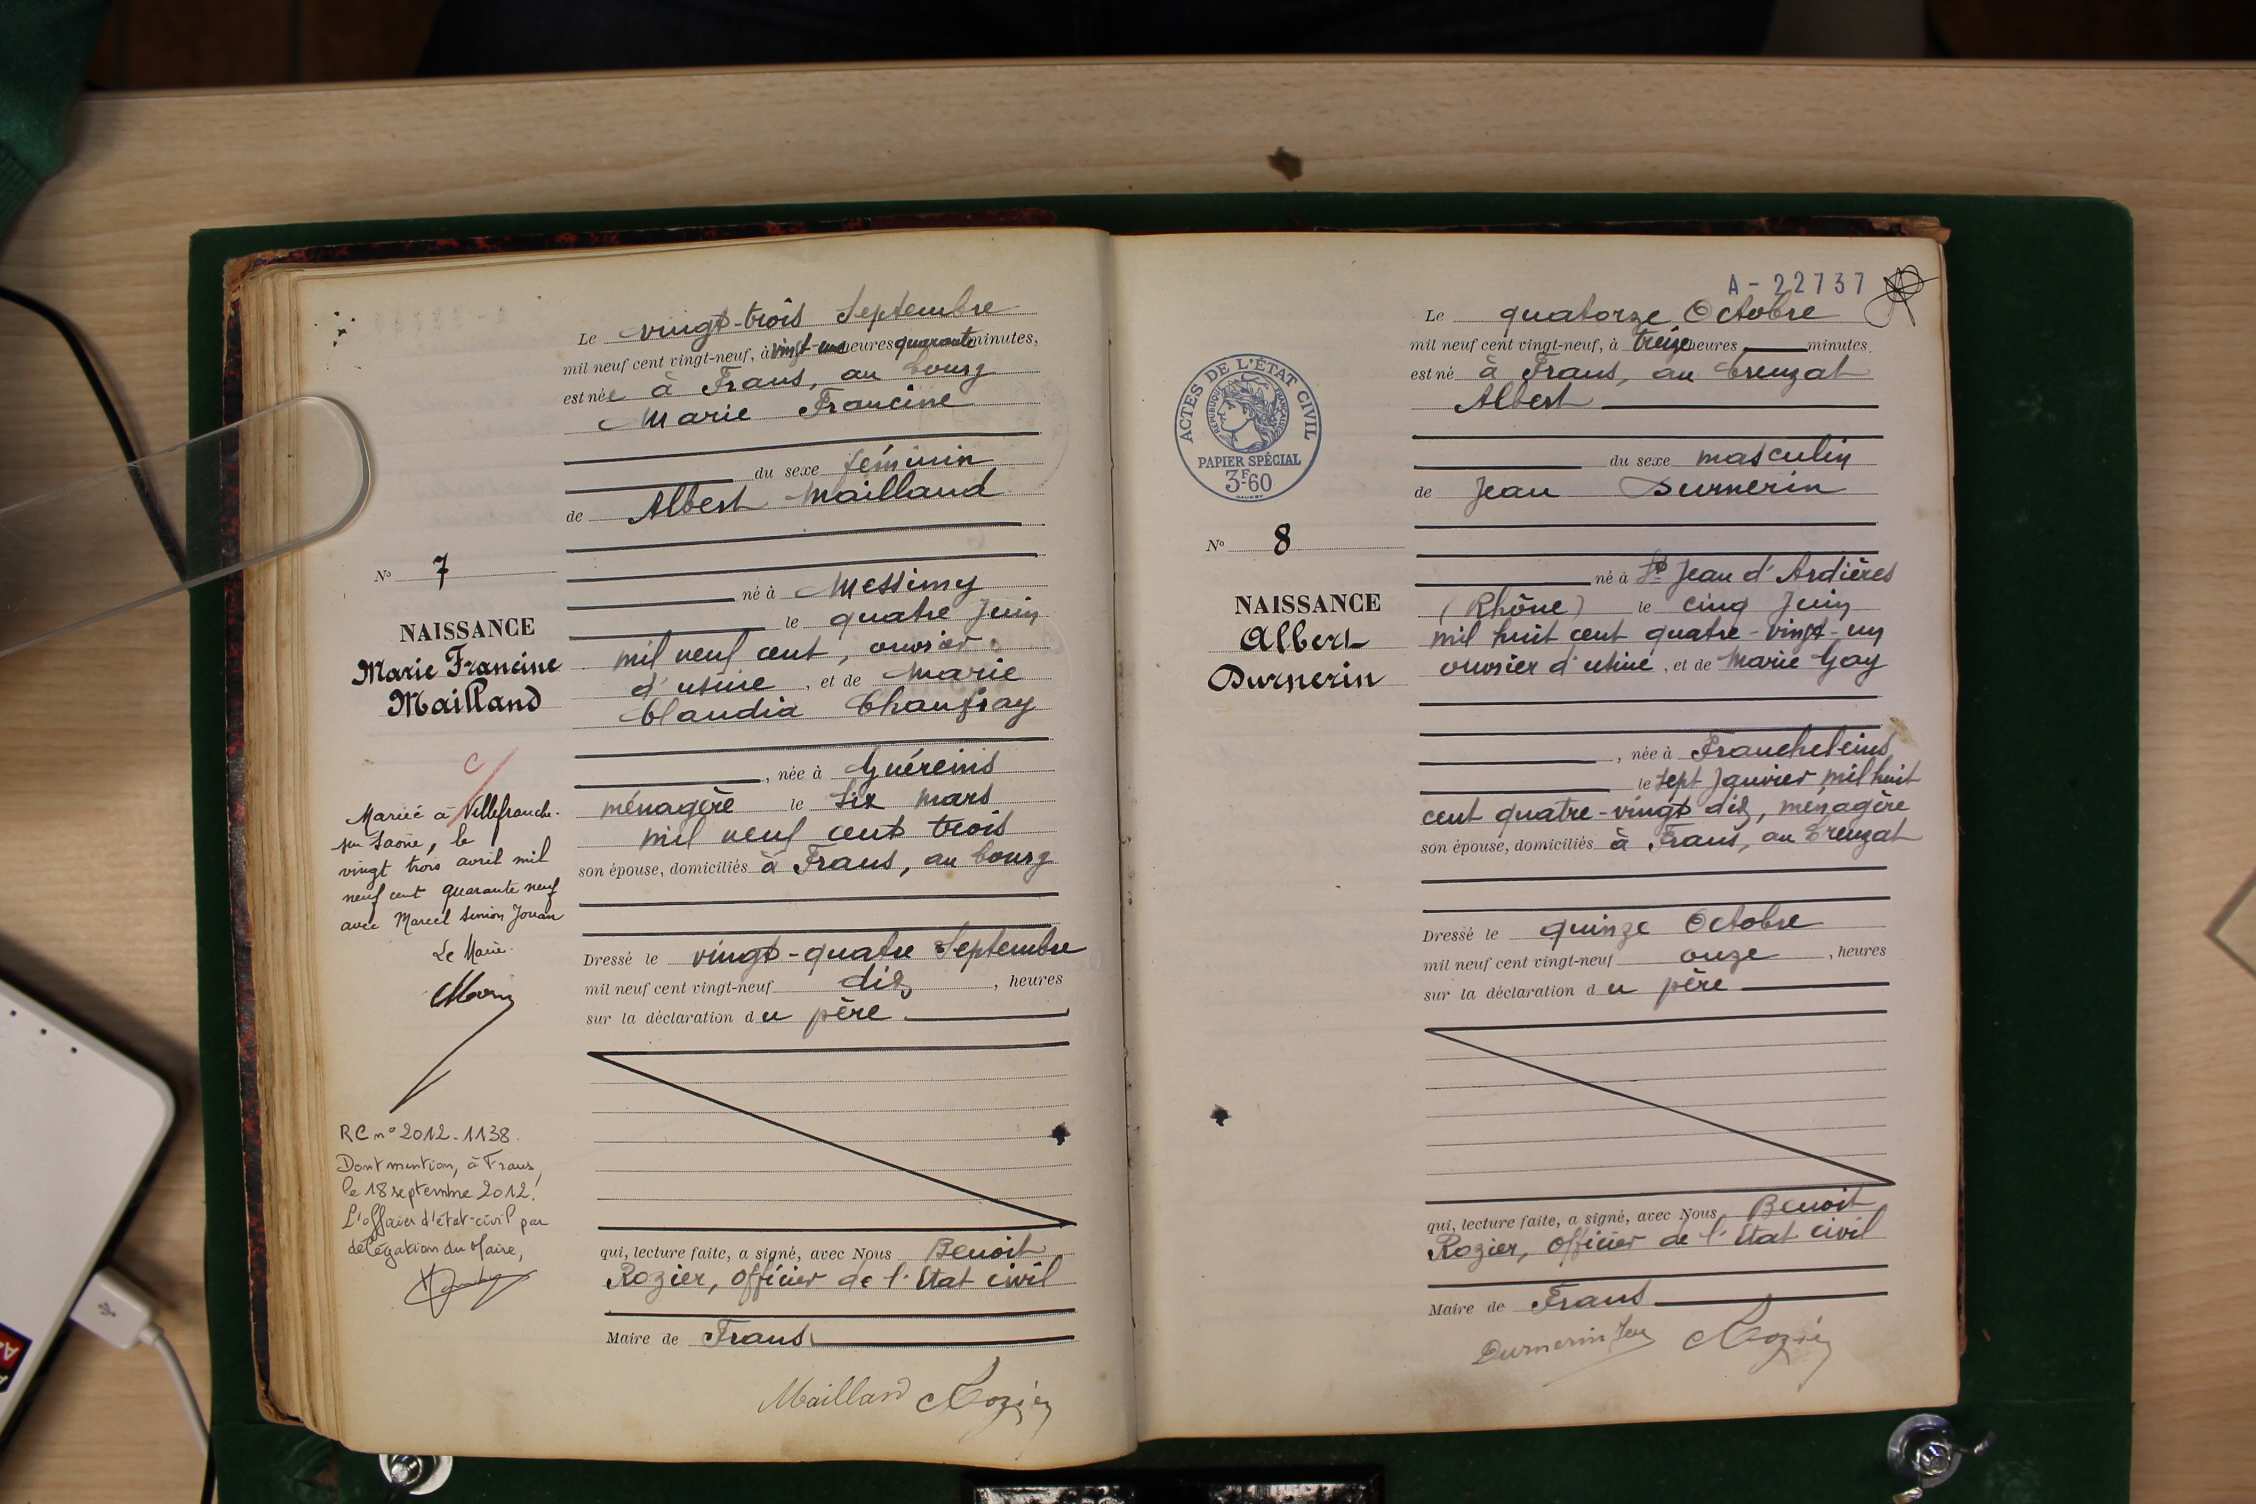 Le vingt-trois Septembre
mil neuf cent vingt-neuf, à vingt-une heures quarante minutes,
est née à Frans, au bourg
Marie Francine
du sexe féminin
de Albert Mailland
né à Messimy
le quatre Juin
mil neuf cent, ouvrier
d'usine, et de Marie
Claudia Chanfray
, née à Guéreins
ménagère le six mars
mil neuf cent trois
son épouse, domiciliés à Frans, au bourg
Dressé le vingt-quatre Septembre
mil neuf cent vingt-neuf dix, heures
sur la déclaration du père
qui, lecture faite, a signé, avec Nous Benoit
Rozier, officier de l'Etat civil
Maire de Frans
Mailland Rozier
No 7
NAISSANCE
Marie Francine
Mailland
C
Mariée à Villefranche-
sur Saône, le
vingt trois avril mil
neuf cent quarante neuf
avec Marcel Simon Jouan
Le Maire
RC n° 2012-1138.
Dont mention, à Frans,
le 18 septembre 2012.
L'officier d'état-civil par
délégation du Maire,
A-22737
Le quatorze Octobre
mil neuf cent vingt-neuf, à treize heures minutes.
est né à Frans, au Creuzat
Albert
du sexe masculin
de Jean Durnerin
né à St Jean d'Ardières
(Rhône) le cinq Juin
mil huit cent quatre-vingt-un
ouvrier d'usine, et de Marie Gay
, née à Francheleins
le sept Janvier mil huit
cent quatre-vingt dix, ménagère
son épouse, domiciliés à Frans, au Creuzat
Dressé le quinze Octobre
mil neuf cent vingt-neuf onze, heures
sur la déclaration du père
qui, lecture faite, a signé, avec Nous Benoit
Rozier, officier de l'Etat civil
Maire de Frans
Durnerin Jean Rozier
ACTES DE L'ÉTAT CIVIL
RÉPUBLIQUE FRANÇAISE
PAPIER SPÉCIAL
3F60
No 8
NAISSANCE
Albert
Durnerin